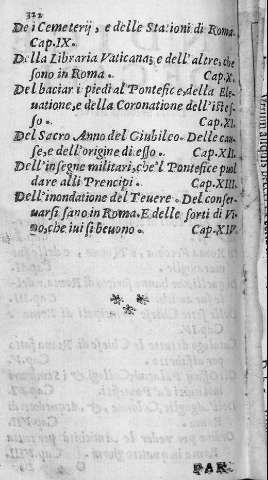 322
De i Cemeterij, e delle Stationi di Roma.
Cap.IX.
Della Libraria Vaticana; e dell'altre, che
sono in Roma. Cap.X.
Del baciar i piedi al Pontefice, della Ele-
uatione, e della Coronatione dell'istes-
so. Cap.XI.
Del Sacro Anno del Giubileo. Delle cau-
se, e dell'origine di esso. Cap.XII.
Dell'insegne militari, che'l Pontefice può
dare alli Prencipi. Cap.XIII.
Dell'inondatione del Teuere. Del conser-
uarsi sano in Roma. E delle sorti di Vi-
no, che iui si beuono. Cap.XIV.
PAR-